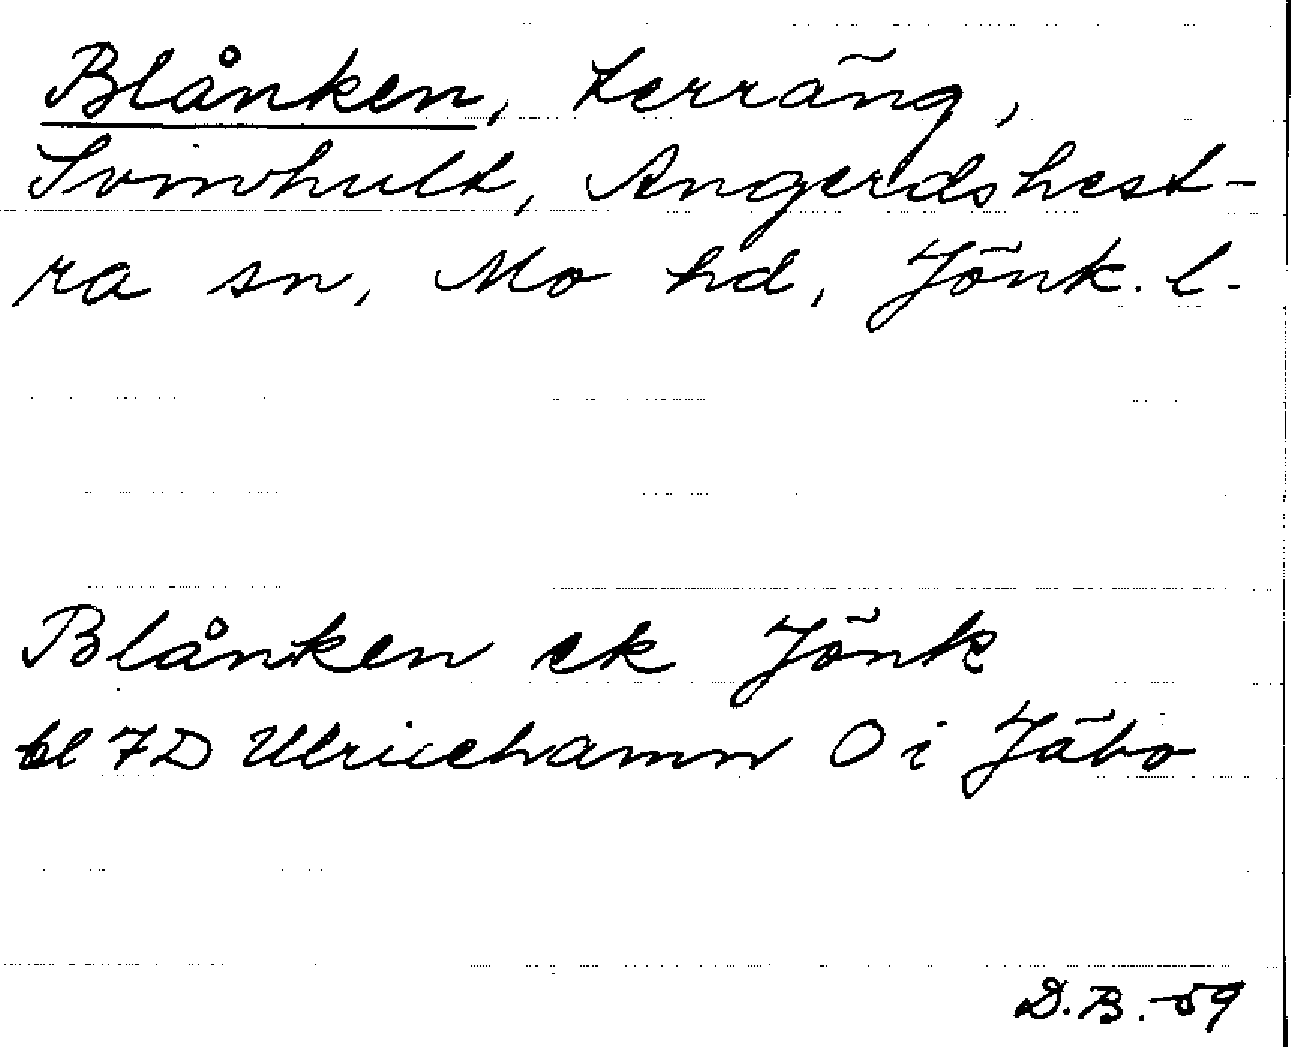 Blånken, terräng,
Svinhult, Angerdshest-
ra sn, Mo hd, Jönk. l.
Blånken ek Jönk
bl 7D Ulricehamn O i Jäbo
D.B.-59